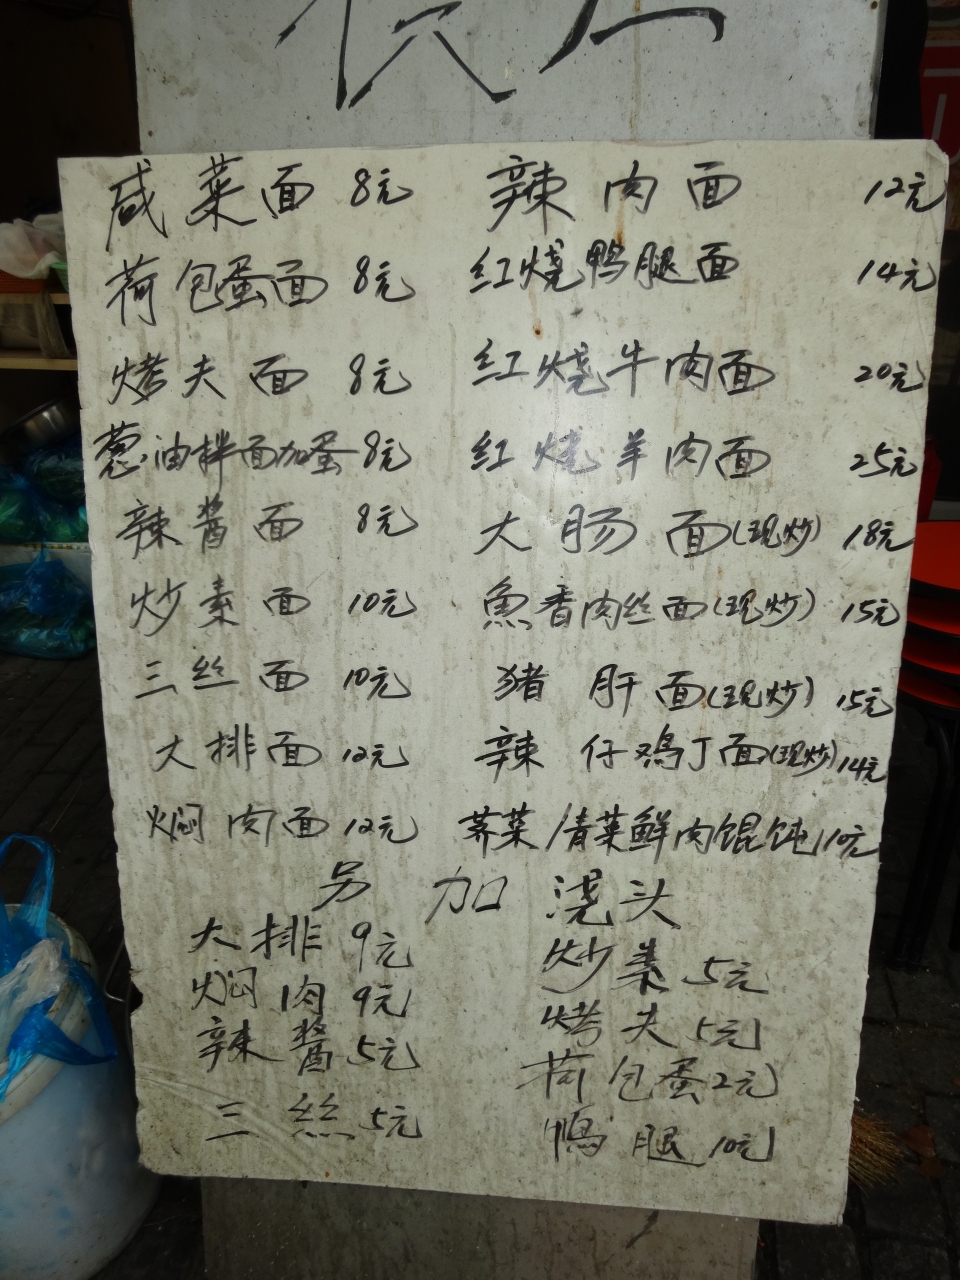 供应
咸菜面 8元 辣肉面 12元
荷包蛋面 8元 红烧鸭腿面 14元
烤夫面 8元 红烧牛肉面 20元
葱油拌面加蛋 8元 红烧羊肉面 25元
辣酱面 8元 大肠面(现炒) 18元
炒素面 10元 魚香肉丝面(现炒) 15元
三丝面 10元 猪肝面(现炒) 15元
大排面 12元 辣仔鸡丁面(现炒) 14元
焖肉面 12元 荠菜/青菜鲜肉馄饨 10元
另加浇头
大排 9元 炒素 5元
焖肉 9元 烤夫 5元
辣酱 5元 荷包蛋 2元
三絲 5元 鴨腿 10元